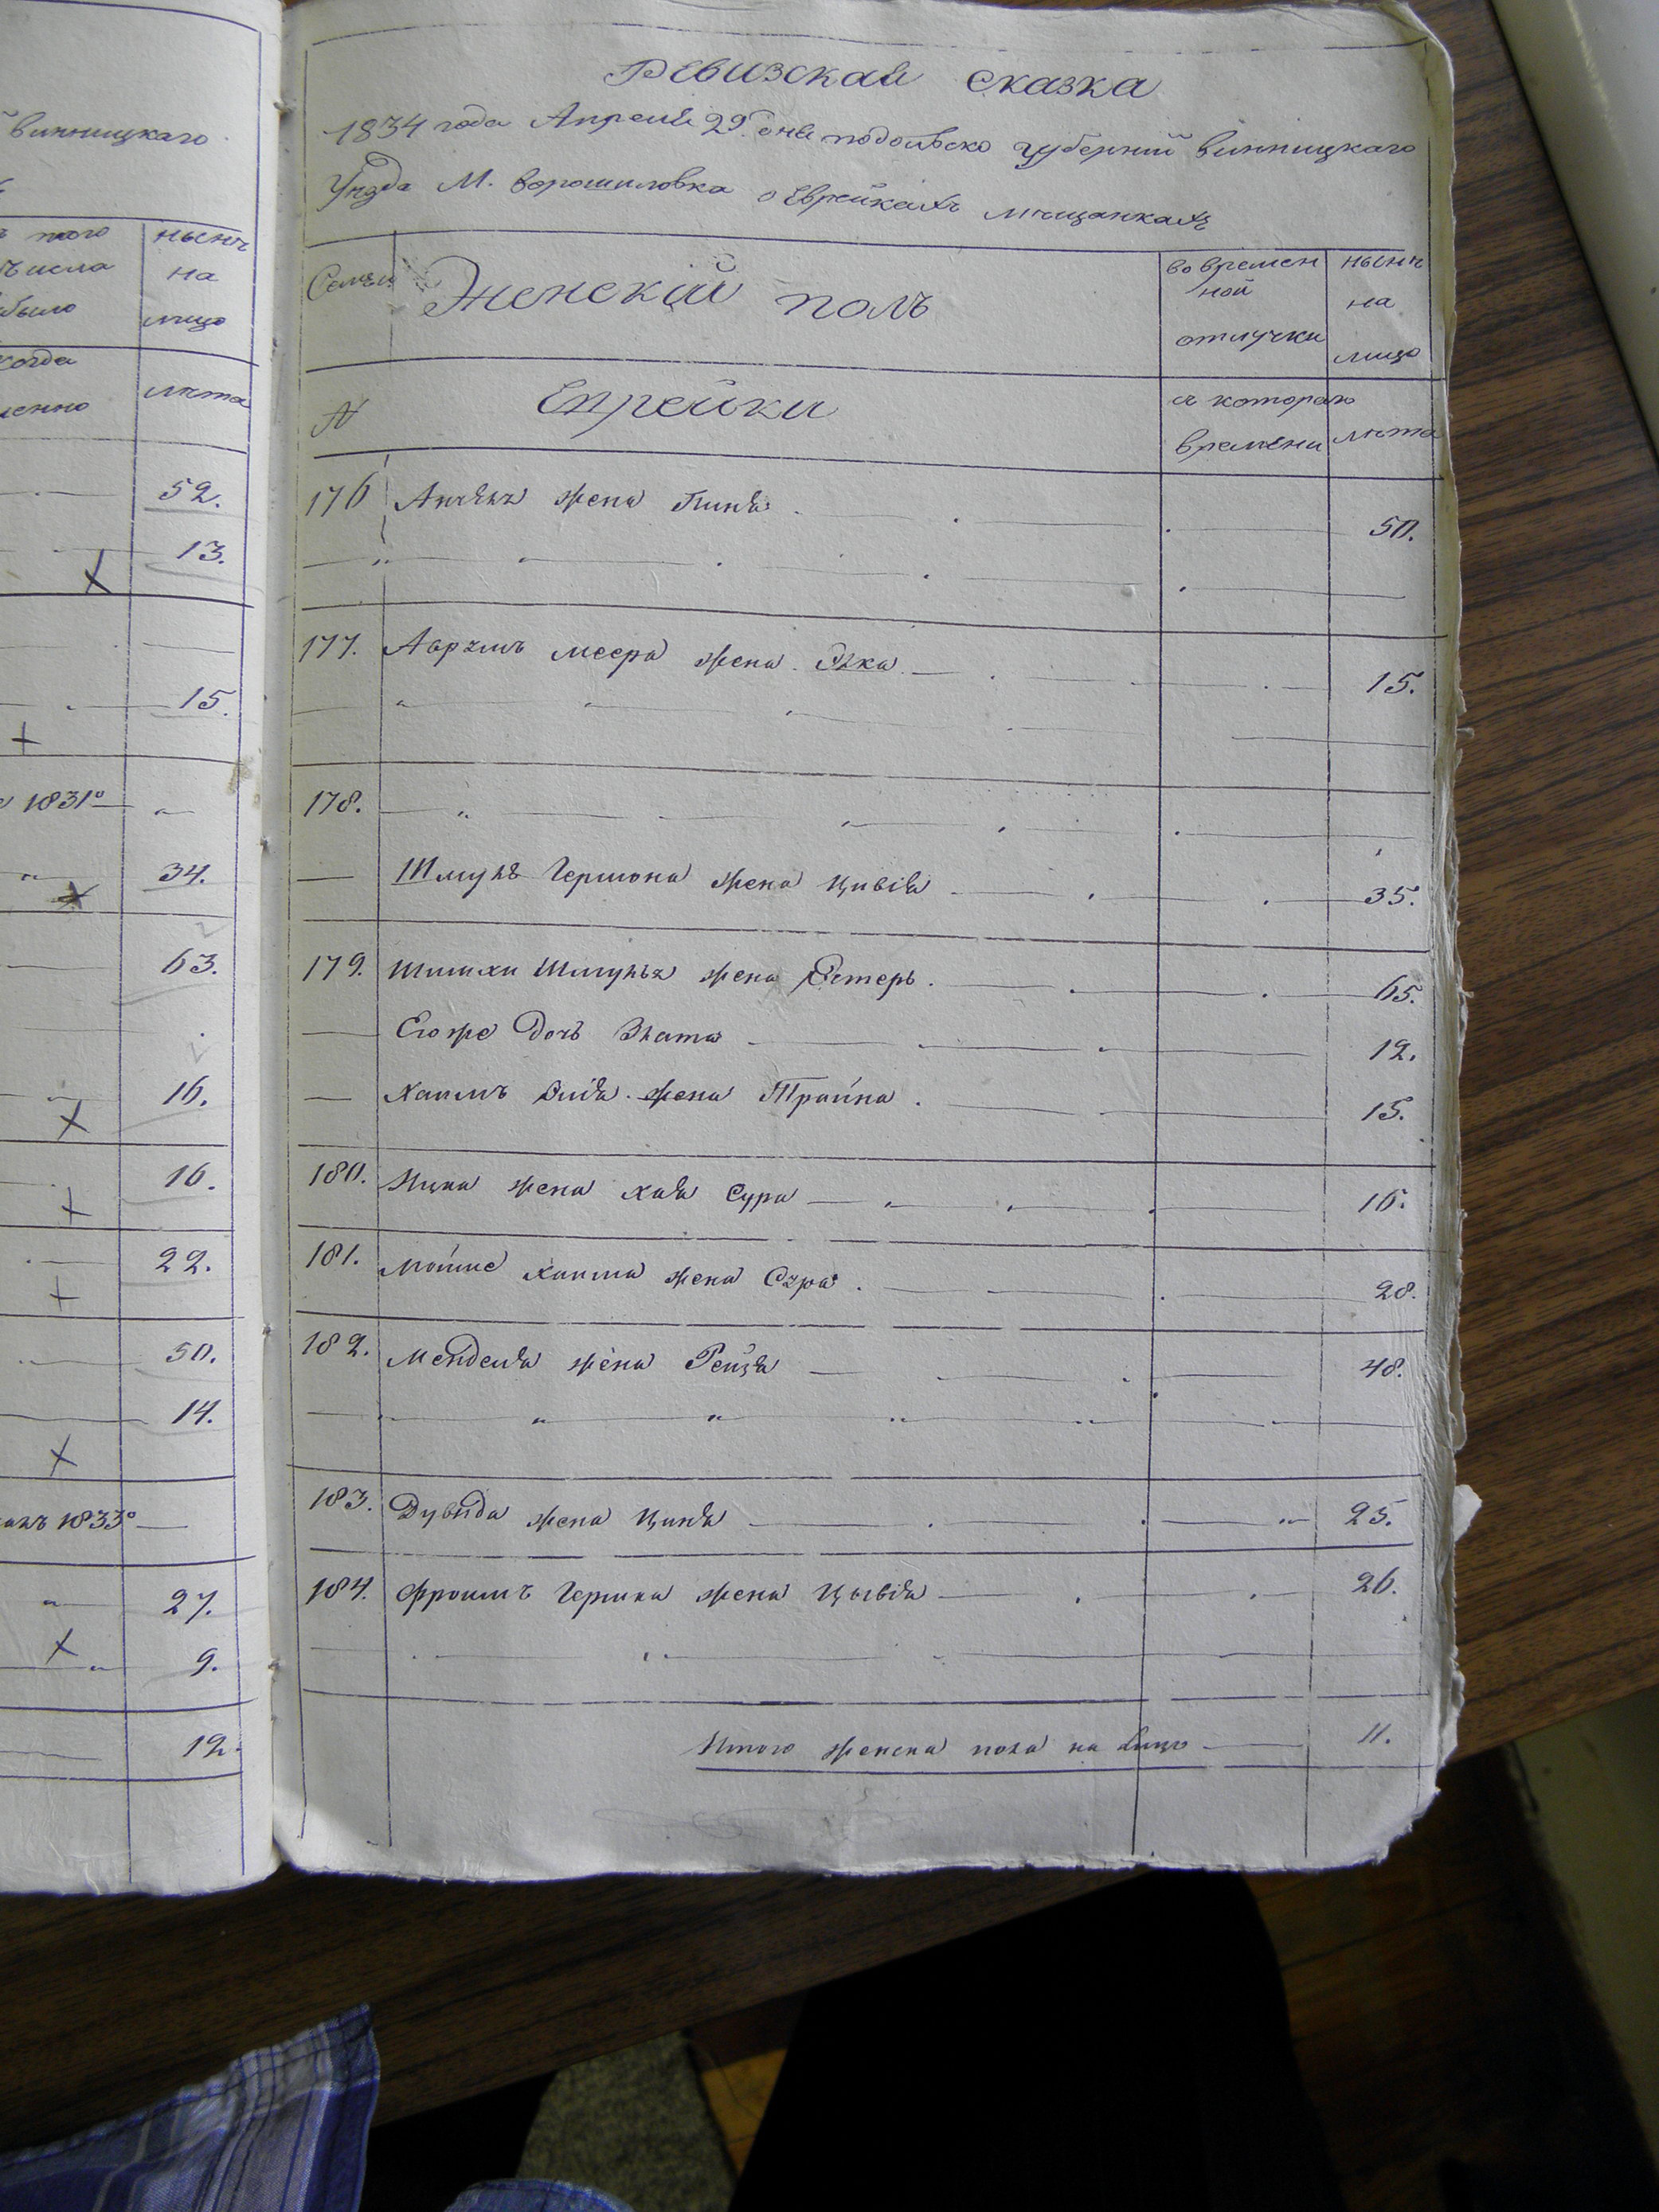 винницкаго
того
числа
было
нынѣ
на
лицо
когда
лѣта
52.
13.
15.
1831º
34.
63.
16.
16.
22.
50.
14.
1833º
27.
9.
12.
Ревизская сказка
1834 года Апреля 29. дня подольско губерніи винницкаго
Уѣзда М. Ворошиловка о Еврейкахъ мѣщанкахъ
Семьи
Женскій полъ
во времен
ной
отлучки
нынѣ
на
лицо
N
Еврейки
с котораго
времени
лѣта
176 жена Пиня 50.
177. Аврумъ меера жена 15.
178.
Шмуля Гершона жена Цивія 35.
179. Шмуля жена Эстеръ. 65.
Его же дочь Злата 12.
Хаимъ Элія жена Трайна. 15.
180. Ицка жена хая Сура 16.
181. Мойше Хаима жена Сура. 28.
182. Менделя жена Рейзя 48.
183. Дувида жена Циня 25.
184. Фроимъ Гершка жена Цывія 26.
Итого женска пола на лицо 11.